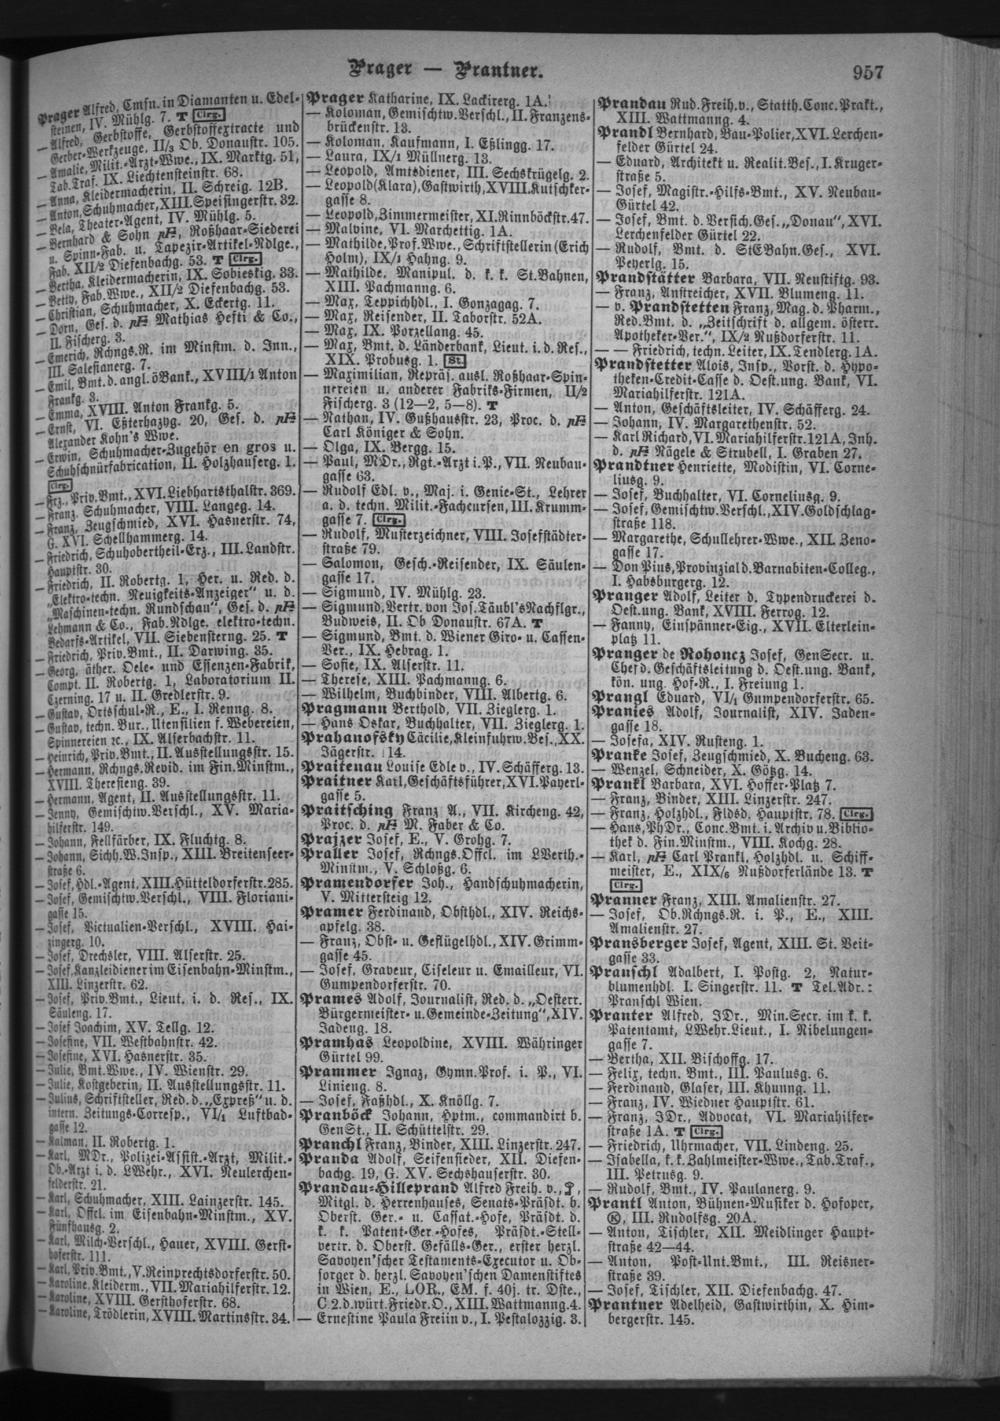 Prager — Prantner.
957
Prager Alfred, Cmsn. in Diamanten u. Edel-
steinen, IV. Mühlg. 7. T Clrg.
— Alfred, Gerbstoffe, Gerbstoffextracte und
Gerber-Werkzeuge, II/3 Ob. Donaustr. 105.
— Amalie, Milit.-Arzt-Wwe., IX. Marktg. 51,
Tab.Traf. IX. Liechtensteinstr. 68.
— Anna, Kleidermacherin, II. Schreig. 12B.
— Anton, Schuhmacher, XIII. Speisingerstr. 32.
— Bela, Theater-Agent, IV. Mühlg. 5.
— Bernhard & Sohn pH, Roßhaar-Siederei
u. Spinn-Fab. u. Tapezir-Artikel-Ndlge.,
Fab. XII/2 Diefenbachg. 53. T Clrg.
— Bertha, Kleidermacherin, IX. Sobieskig. 33.
— Betty, Fab.Wwe., XII/2 Diefenbachg. 53.
— Christian, Schuhmacher, X. Eckertg. 11.
— Dorn, Ges. d. pH Mathias Hefti & Co.,
II. Fischerg. 3.
— Emerich, Rchngs.R. im Minstm. d. Inn.,
III. Salesianerg. 7.
— Emil, Bmt. d. angl.öBank., XVIII/1 Anton
Frankg. 3.
— Emma, XVIII. Anton Frankg. 5.
— Ernst, VI. Eßterhazyg. 20, Ges. d. pH
Alexander Kohn's Wwe.
— Erwin, Schuhmacher-Zugehör en gros u.
Schuhschnürfabrication, II. Holzhauserg. 1.
Clrg.
— Frz., Priv.Bmt., XVI. Liebhartsthalstr. 369.
— Franz, Schuhmacher, VIII. Langeg. 14.
— Franz, Zeugschmied, XVI. Hasnerstr. 74,
G. XVI. Schellhammerg. 14.
— Friedrich, Schuhobertheil-Erz., III. Landstr.
Hauptstr. 30.
— Friedrich, II. Robertg. 1, Her. u. Red. d.
„Elektro-techn. Neuigkeits-Anzeiger“ u. d.
„Maschinen-techn. Rundschau“, Ges. d. pH
Lehmann & Co., Fab.Ndlge. elektro-techn.
Bedarfs-Artikel, VII. Siebensterng. 25. T
— Friedrich, Priv.Bmt., II. Darwing. 35.
— Georg, äther. Oele- und Essenzen-Fabrik,
Compt. II. Robertg. 1, Laboratorium II.
Czerning. 17 u. II. Gredlerstr. 9.
— Gustav, Ortsschul-R., E., I. Renng. 8.
— Gustav, techn. Bur., Utensilien f. Webereien,
Spinnereien ec., IX. Alserbachstr. 11.
— Heinrich, Priv.Bmt., II. Ausstellungsstr. 15.
— Hermann, Rchngs.Revid. im Fin.Minstm.,
XVIII. Theresieng. 39.
— Hermann, Agent, II. Ausstellungsstr. 11.
— Jenny, Gemischtw.Verschl., XV. Maria-
hilferstr. 149.
— Johann, Fellfärber, IX. Fluchtg. 8.
— Johann, Sichh.W.Insp., XIII. Breitenseer-
straße 6.
— Josef, Hdl.-Agent, XIII. Hütteldorferstr. 285.
— Josef, Gemischtw.Verschl., VIII. Floriani-
gasse 15.
— Josef, Victualien-Verschl., XVIII. Hai-
zingerg. 10.
— Josef, Drechsler, VIII. Alserstr. 25.
— Josef, Kanzleidiener im Eisenbahn-Minstm.,
XIII. Linzerstr. 62.
— Josef, Priv.Bmt., Lieut. i. d. Res., IX.
Säuleng. 17.
— Josef Joachim, XV. Tellg. 12.
— Josefine, VII. Westbahnstr. 42.
— Josefine, XVI. Hasnerstr. 35.
— Julie, Bmt.Wwe., IV. Wienstr. 29.
— Julie, Kostgeberin, II. Ausstellungsstr. 11.
— Julius, Schriftsteller, Red. d. „Expreß“ u. d.
intern. Zeitungs-Corresp., VI/1 Luftbad-
gasse 12.
— Kalman, II. Robertg. 1.
— Karl, MDr., Polizei-Assist.-Arzt, Milit.-
Ob.-Arzt i. d. LWehr., XVI. Neulerchen-
felderstr. 21.
— Karl, Schuhmacher, XIII. Lainzerstr. 145.
— Karl, Offcl. im Eisenbahn-Minstm., XV.
Fünfhausg. 2.
— Karl, Milch-Verschl., Hauer, XVIII. Gerst-
hoferstr. 111.
— Karl, Priv.Bmt., V. Reinprechtsdorferstr. 50.
— Karoline, Kleiderm., VII. Mariahilferstr. 12.
— Karoline, XVIII. Gersthoferstr. 68.
— Karoline, Trödlerin, XVIII. Martinsstr. 34.
Prager Katharine, IX. Lackirerg. 1A.
— Koloman, Gemischtw.Verschl., II. Franzens-
brückenstr. 13.
— Koloman, Kaufmann, I. Eßlingg. 17.
— Laura, IX/1 Müllnerg. 13.
— Leopold, Amtsdiener, III. Sechskrügelg. 2.
— Leopold (Klara), Gastwirth, XVIII. Kutschker-
gasse 8.
— Leopold, Zimmermeister, XI. Rinnböckstr. 47.
— Malvine, VI. Marchettig. 1A.
— Mathilde, Prof.Wwe., Schriftstellerin (Erich
Holm), IX/1 Hahng. 9.
— Mathilde, Manipul. d. k. k. St.Bahnen,
XIII. Pachmanng. 6.
— Max, Teppichhdl., I. Gonzagag. 7.
— Max, Reisender, II. Taborstr. 52A.
— Max, IX. Porzellang. 45.
— Max, Bmt. d. Länderbank, Lieut. i. d. Res.,
XIX. Probusg. 1. St.
— Maximilian, Repräs. ausl. Roßhaar-Spin-
nereien u. anderer Fabriks-Firmen, II/2
Fischerg. 3 (12—2, 5—8). T
— Nathan, IV. Gußhausstr. 23, Proc. d. pH
Carl Königer & Sohn.
— Olga, IX. Bergg. 15.
— Paul, MDr., Rgt.-Arzt i. P., VII. Neubau-
gasse 63.
— Rudolf Edl. v., Maj. i. Genie-St., Lehrer
a. d. techn. Milit.-Fachcursen, III. Krumm-
gasse 7. Clrg.
— Rudolf, Musterzeichner, VIII. Josefstädter-
straße 79.
— Salomon, Gesch.-Reisender, IX. Säulen-
gasse 17.
— Sigmund, IV. Mühlg. 23.
— Sigmund, Vertr. von Jos. Täubl's Nachflgr.,
Budweis, II. Ob Donaustr. 67A. T
— Sigmund, Bmt. d. Wiener Giro- u. Cassen-
Ver., IX. Hebrag. 1.
— Sofie, IX. Alserstr. 11.
— Therese, XIII. Pachmanng. 6.
— Wilhelm, Buchbinder, VIII. Albertg. 6.
Pragmann Berthold, VII. Zieglerg. 1.
— Hans Oskar, Buchhalter, VII. Zieglerg. 1.
Prahanofsky Cäcilie, Kleinfuhrw.Bes., XX.
Jägerstr. 14.
Praitenau Louise Edle v., IV. Schäfferg. 13.
Praitner Karl, Geschäftsführer, XVI. Payerl-
gasse 5.
Praitsching Franz A., VII. Kircheng. 42,
Proc. d. pH M. Faber & Co.
Prajzer Josef, E., V. Grohg. 7.
Praller Josef, Rchngs.Offcl. im LVerth.-
Minstm., V. Schloßg. 6.
Pramendorfer Joh., Handschuhmacherin,
V. Mittersteig 12.
Pramer Ferdinand, Obsthdl., XIV. Reichs-
apfelg. 38.
— Franz, Obst- u. Geflügelhdl., XIV. Grimm-
gasse 45.
— Josef, Graveur, Ciseleur u. Emailleur, VI.
Gumpendorferstr. 70.
Prames Adolf, Journalist, Red. d. „Oesterr.
Bürgermeister- u. Gemeinde-Zeitung“, XIV.
Jadeng. 18.
Pramhas Leopoldine, XVIII. Währinger
Gürtel 99.
Prammer Ignaz, Gymn.Prof. i. P., VI.
Linieng. 8.
— Josef, Faßhdl., X. Knöllg. 7.
Pranböck Johann, Hptm., commandirt b.
GenSt., II. Schüttelstr. 29.
Pranchl Franz, Binder, XIII. Linzerstr. 247.
Pranda Adolf, Seifensieder, XII. Diefen-
bachg. 19, G. XV. Sechshauserstr. 30.
Prandau-Hilleprand Alfred Freih. v.,
Mitgl. d. Herrenhauses, Senats-Präsdt. b.
Oberst. Ger.- u. Cassat.-Hofe, Präsdt. d.
k. k. Patent-Ger.-Hofes, Präsdt.-Stell-
vertr. d. Oberst. Gefälls-Ger., erster herzl.
Savoyen'scher Testaments-Executor u. Ob-
sorger d. herzl. Savoyen'schen Damenstiftes
in Wien, E., LOR., EM. f. 40j. tr. Dste.,
C 2. d. würt. Friedr.O., XIII. Wattmanng. 4.
— Ernestine Paula Freiin v., I. Pestalozzig. 3.
Prandau Rud. Freih. v., Statth.Conc.Prakt.,
XIII. Wattmanng. 4.
Prandl Bernhard, Bau-Polier, XVI. Lerchen-
felder Gürtel 24.
— Eduard, Architekt u. Realit.Bes., I. Kruger-
straße 5.
— Josef, Magistr.-Hilfs-Bmt., XV. Neubau-
Gürtel 42.
— Josef, Bmt. d. Versich.Ges. „Donau“, XVI.
Lerchenfelder Gürtel 22.
— Rudolf, Bmt. d. StEBahn.Ges., XVI.
Peyerlg. 15.
Prandstätter Barbara, VII. Neustiftg. 93.
— Franz, Anstreicher, XVII. Blumeng. 11.
— v. Prandstetten Franz, Mag. d. Pharm.,
Red.Bmt. d. „Zeitschrift d. allgem. österr.
Apotheker-Ver.“, IX/2 Nußdorferstr. 11.
— — Friedrich, techn. Leiter, IX. Tendlerg. 1A.
Prandstetter Alois, Insp., Vorst. d. Hypo-
theken-Credit-Casse d. Oest.ung. Bank, VI.
Mariahilferstr. 121A.
— Anton, Geschäftsleiter, IV. Schäfferg. 24.
— Johann, IV. Margarethenstr. 52.
— Karl Richard, VI. Mariahilferstr. 121A, Inh.
d. pH Nägele & Strubell, I. Graben 27.
Prandtner Henriette, Modistin, VI. Corne-
liusg. 9.
— Josef, Buchhalter, VI. Corneliusg. 9.
— Josef, Gemischtw.Verschl., XIV. Goldschlag-
straße 118.
— Margarethe, Schullehrer-Wwe., XII. Zeno-
gasse 17.
— Don Pius, Provinzial d. Barnabiten-Colleg.,
I. Habsburgerg. 12.
Pranger Adolf, Leiter d. Typendruckerei d.
Oest.ung. Bank, XVIII. Ferrog. 12.
— Fanny, Einspänner-Eig., XVII. Elterlein-
platz 11.
Pranger de Rohoncz Josef, GenSecr. u.
Chef d. Geschäftsleitung d. Oest.ung. Bank,
kön. ung. Hof-R., I. Freiung 1.
Prangl Eduard, VI/1 Gumpendorferstr. 65.
Pranies Adolf, Journalist, XIV. Jaden-
gasse 18.
— Josefa, XIV. Rusteng. 1.
Pranke Josef, Zeugschmied, X. Bucheng. 63.
— Wenzel, Schneider, X. Götzg. 14.
Prankl Barbara, XVI. Hoffer-Platz 7.
— Franz, Binder, XIII. Linzerstr. 247.
— Franz, Holzhdl., Fldsd. Hauptstr. 78. Clrg.
— Hans, PhDr., Conc.Bmt. i. Archiv u. Biblio-
thek d. Fin.Minstm., VIII. Kochg. 28.
— Karl, pH Carl Prankl, Holzhdl. u. Schiff-
meister, E., XIX/6 Nußdorferlände 13. T
Clrg.
Pranner Franz, XIII. Amalienstr. 27.
— Josef, Ob.Rchngs.R. i. P., E., XIII.
Amalienstr. 27.
Pransberger Josef, Agent, XIII. St. Veit-
gasse 33.
Pranschl Adalbert, I. Postg. 2, Natur-
blumenhdl. I. Singerstr. 11. T Tel.Adr.:
Pranschl Wien.
Pranter Alfred, JDr., Min.Secr. im k. k.
Patentamt, LWehr.Lieut., I. Nibelungen-
gasse 7.
— Bertha, XII. Bischoffg. 17.
— Felix, techn. Bmt., III. Paulusg. 6.
— Ferdinand, Glaser, III. Khunng. 11.
— Franz, IV. Wiedner Hauptstr. 61.
— Franz, JDr., Advocat, VI. Mariahilfer-
straße 1A. T Clrg.
— Friedrich, Uhrmacher, VII. Lindeng. 25.
— Isabella, k. k. Zahlmeister-Wwe., Tab.Traf.,
III. Petrusg. 9.
— Rudolf, Bmt., IV. Paulanerg. 9.
Prantl Anton, Bühnen-Musiker d. Hofoper,
K, III. Rudolfsg. 20A.
— Anton, Tischler, XII. Meidlinger Haupt-
straße 42—44.
— Anton, Post-Unt.Bmt., III. Reisner-
straße 39.
— Josef, Tischler, XII. Diefenbachg. 47.
Prantner Adelheid, Gastwirthin, X. Him-
bergerstr. 145.